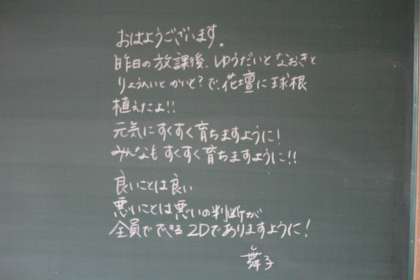 おはようございます。
昨日の放課後、ゆうだいとなおきと
りょうへいとかいと?で、花壇に球根
植えたよ!!
元気にすくすく育ちますように!
みんなもすくすく育ちますように!!
良いことは良い
悪いことは悪いの判断が
全員でできる2Dでありますように!
舞子